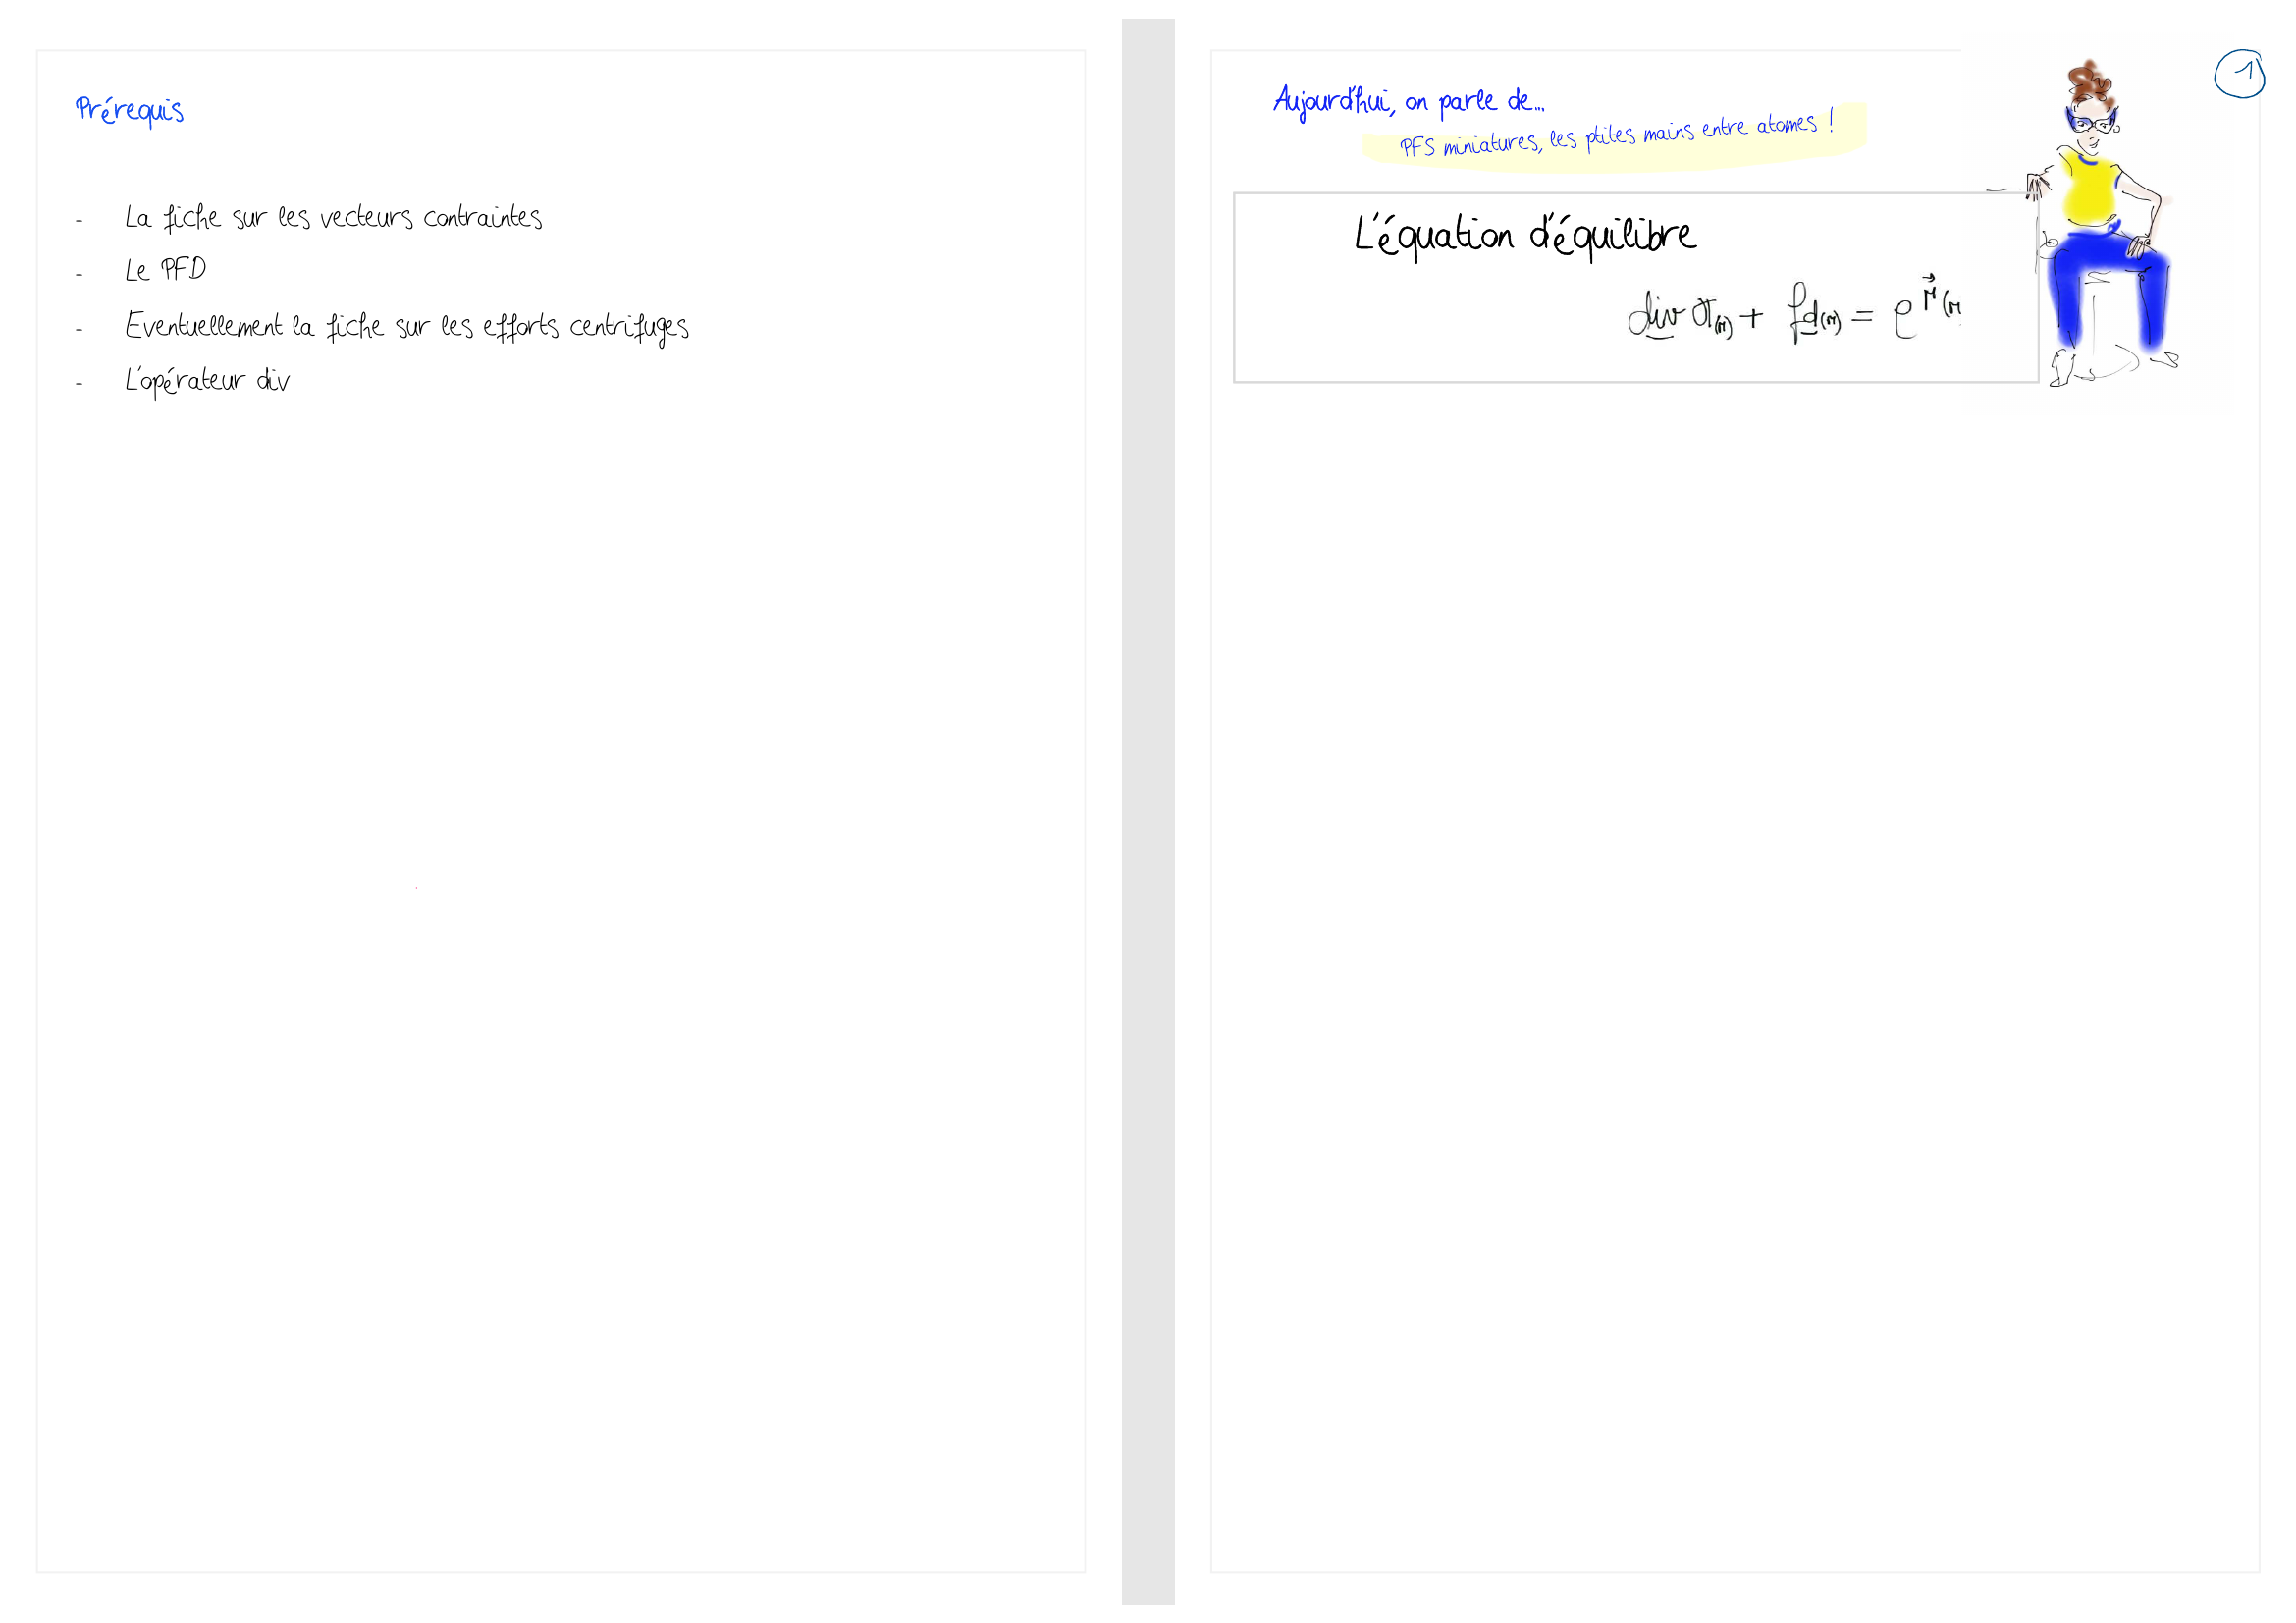 Prérequis
- La fiche sur les vecteurs contraintes
- Le PFD
- Eventuellement la fiche sur les efforts centrifuges
- L'opérateur div
1
Aujourd'hui, on parle de...
PFS miniatures, les ptites mains entre atomes !
L'équation d'équilibre
div σ(M) + fd(M) = ρ